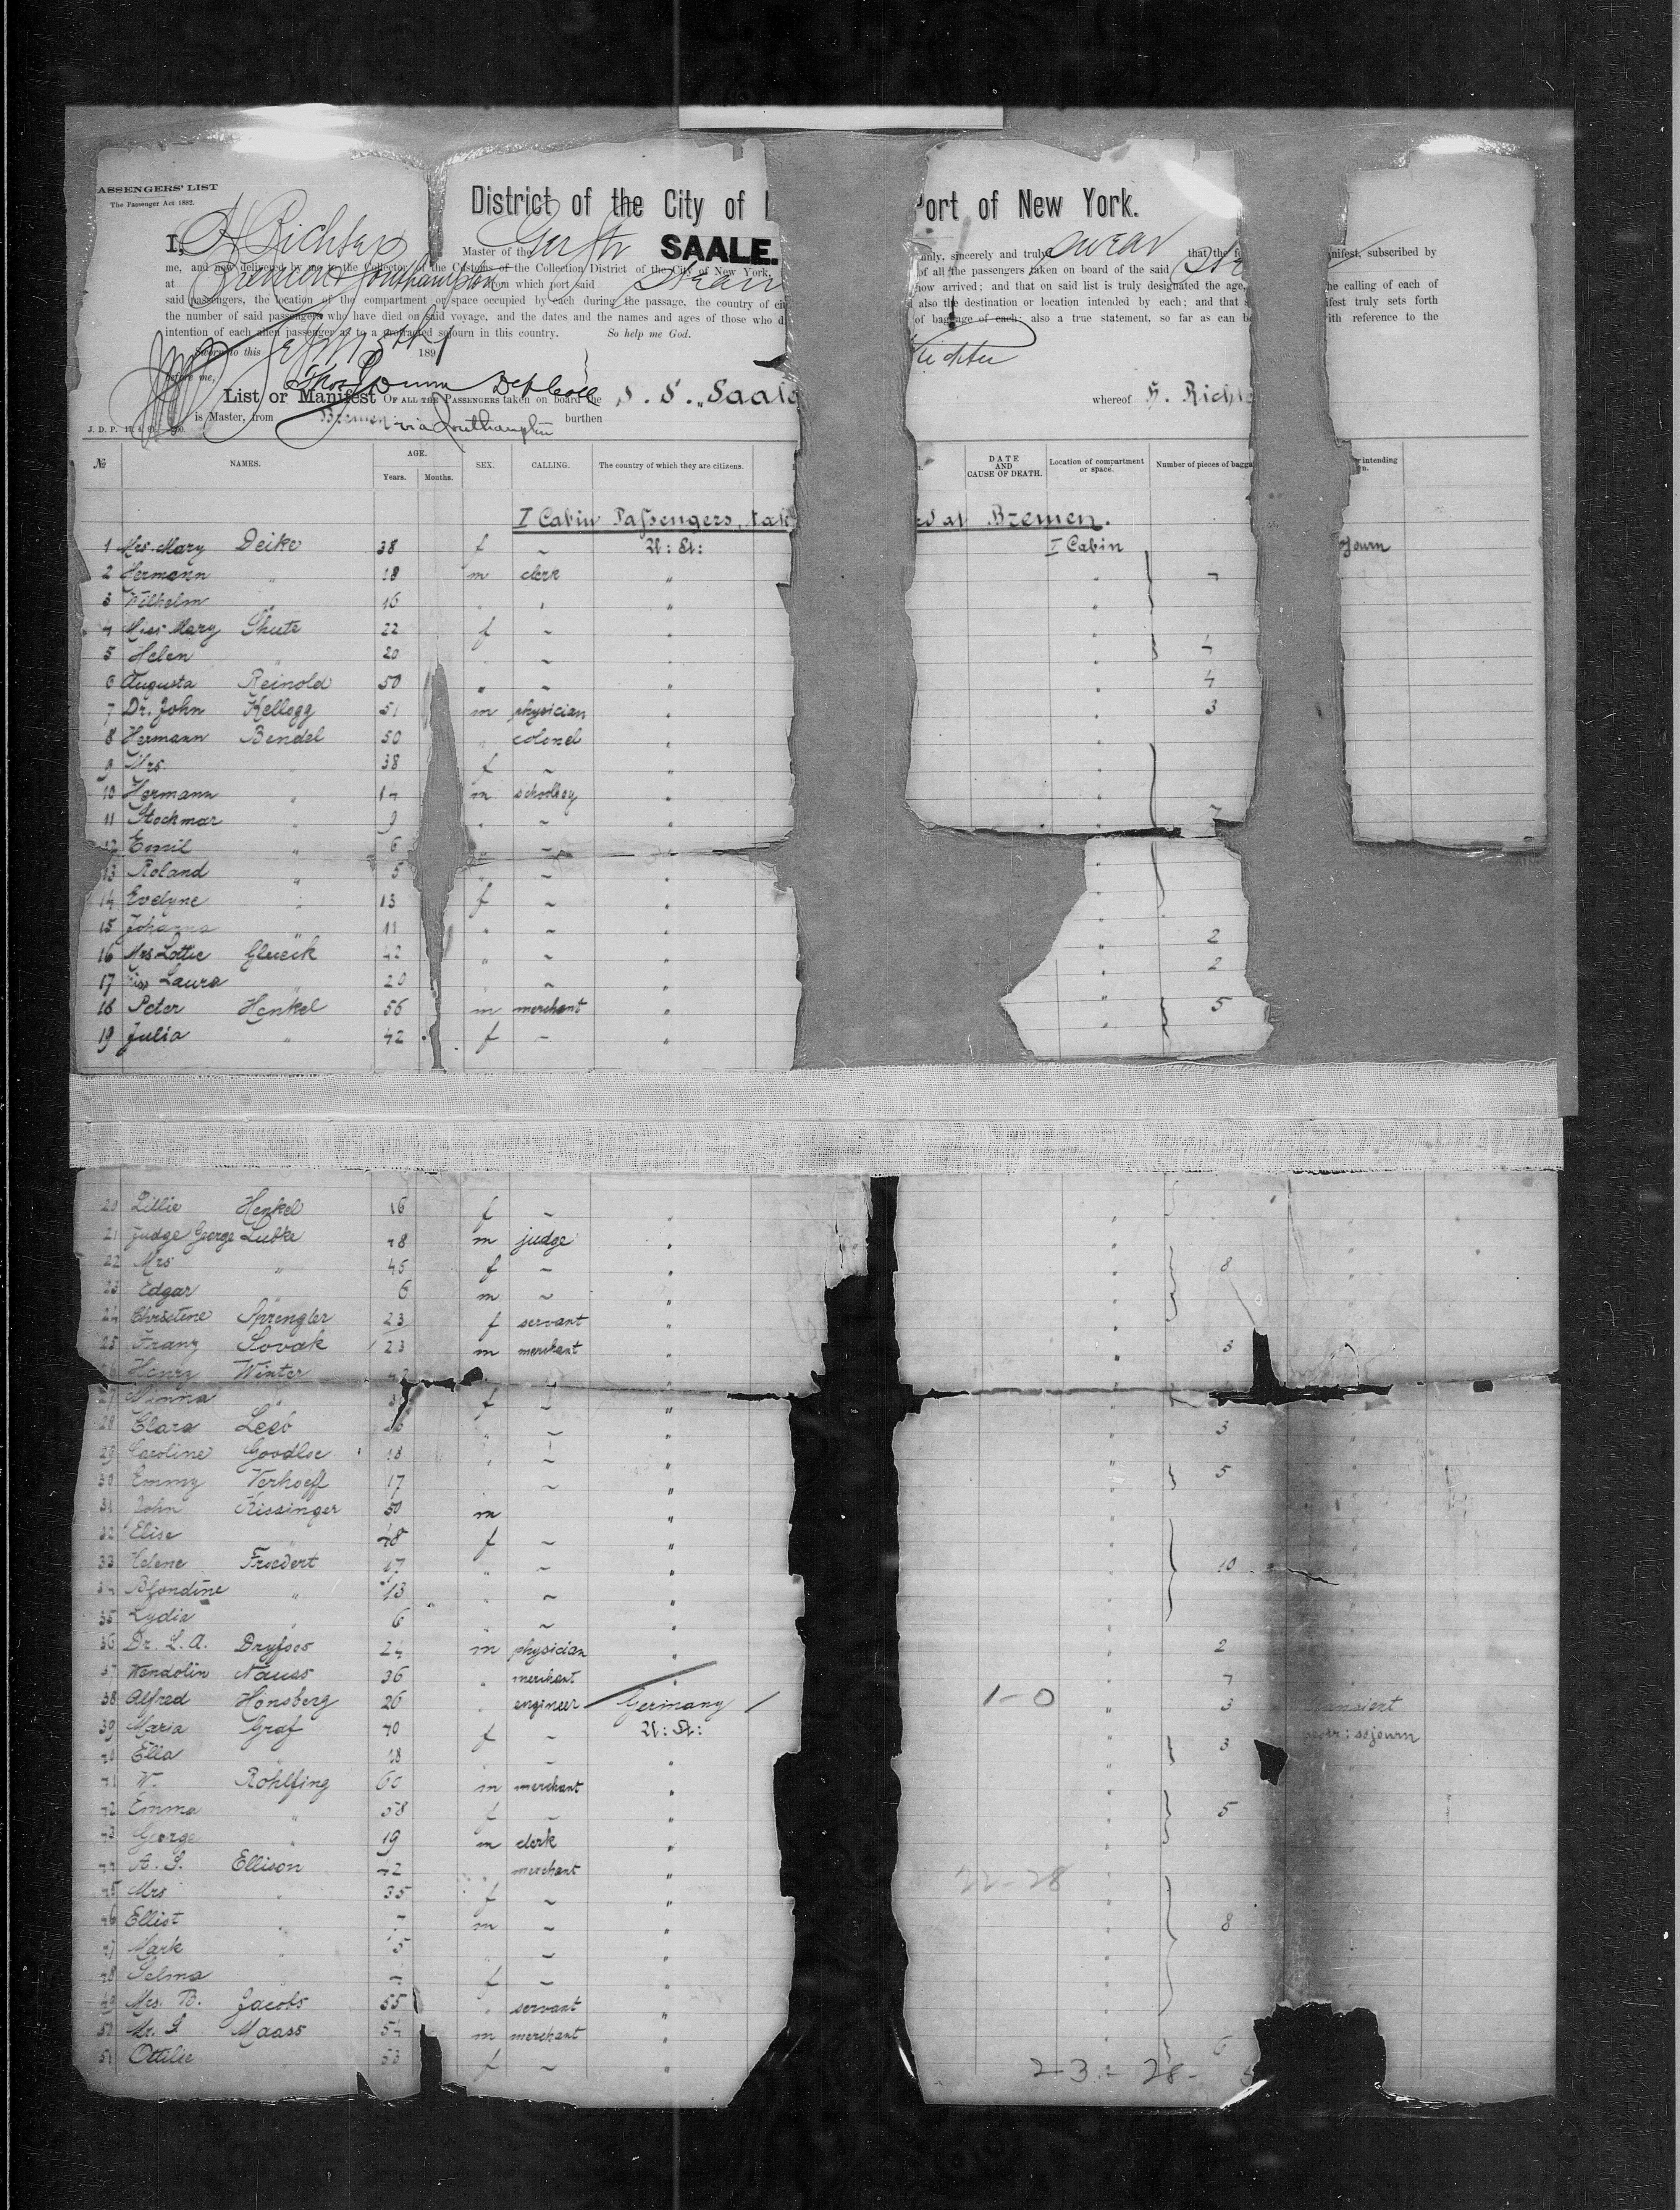 ASSENGERS' LIST
The Passenger Act 1882.
District of the City of Port of New York.
I, H Richter Master of the Ger Str SAALE. only, sincerely and truly swear that the nifest, subscribed by
me, and now delivered by me to the Collector of the Customs of the Collection District of the City of New York, of all the passengers taken on board of the said
at Bremen Southampton from which port said now arrived; and that on said list is truly designated the age, he calling of each of
said passengers, the location of the compartment or space occupied by each during the passage, the country of also the destination or location intended by each; and that ifest truly sets forth
the number of said passengers who have died on said voyage, and the dates and the names and ages of those who of baggage of each: also a true statement, so far as can ith reference to the
intention of each alien passenger as to a protracted sojourn in this country. So help me God.
Sworn to this 189 Richter
before me,
List or Manifest OF ALL THE PASSENGERS taken on board the S. S. „Saale whereof H. Richte
is Master, from Bremen via Southampton burthen
J. D. P.
№ NAMES. AGE. Years. Months. SEX. CALLING. The country of which they are citizens. DATE AND CAUSE OF DEATH. Location of compartment or space. Number of pieces of bagga r intending
I Cabin Passengers, tak at Bremen.
1 Mrs. Mary Deike 38 f ~ U: St: I Cabin journ
2 Hermann " 18 m clerk "
3 Wilhelm " 16 " "
4 Miss Mary Shute 22 f ~ "
5 Helen " 20 " ~ " 4
6 Augusta Reinold 50 " ~ " 4
7 Dr. John Kellogg 51 m physician " 3
8 Hermann Bendel 50 " colonel "
9 Mrs. " 38 f ~ "
10 Hermann " 14 m schoolboy "
11 Stockmar " 9 " ~ " 7
12 Emil " 6 " ~ "
13 Roland " 5 " ~ "
14 Evelyne " 13 f ~ "
15 Johanna " 11 " ~ "
16 Mrs Lottie Glueck 42 " ~ " 2
17 Miss Laura " 20 " ~ " 2
18 Peter Henkel 56 m merchant " 5
19 Julia " 42 f ~ "
20 Lillie Henkel 16 f ~ "
21 Judge George Lubke 48 m judge "
22 Mrs " 45 f ~ " 8
23 Edgar " 6 m ~ "
24 Christene Sprengler 23 f servant "
25 Franz Sovak 23 m merchant " 3
26 Henry Winter
27 Minna " f ~ "
28 Clara Leeb " ~ " 3
29 Caroline Goodloe 18 " ~ "
30 Emmy Verhoeff 17 ~ " 5
31 John Kissinger 50 m "
32 Elise " 48 f ~ "
33 Helene Froedert 17 " ~ " 10
34 Blondine " 13 " ~ "
35 Lydia " 6 " ~ "
36 Dr. L. A. Dryfoos 24 m physician " 2
37 Wendolin Nauss 36 " merchant " 7
38 Alfred Hönsberg 26 " engineer Germany 1-0 " 3 transient
39 Maria Graf 40 f ~ U: St: sojourn
40 Ella " 18 " ~ " 3
41 W. Rohlfing 60 m merchant "
42 Emma " 58 f ~ " 5
43 George " 19 m clerk "
44 A. S. Ellison 42 " merchant " 22-28
45 Mrs " 35 f ~ "
46 Elliot " 7 m ~ " 8
47 Mark " 5 " ~ "
48 Selma " 4 f ~ "
49 Mrs. B. Jacobs 55 " servant "
50 Mr. S. Maass 54 m merchant " 6
51 Ottilie " 53 f ~ "
2-3- 28-